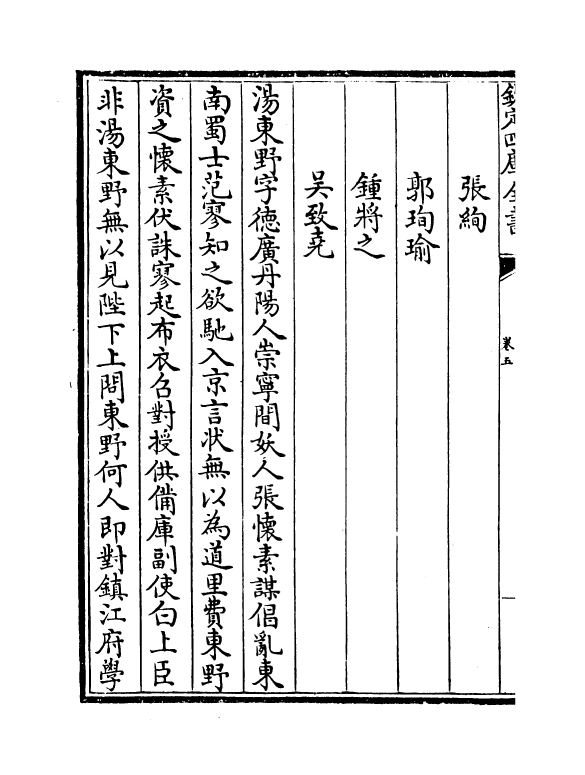 欽定四庫全書
卷五
張絢
郭珣瑜
鍾將之
吴致堯
湯東野字德廣丹陽人崇寧間妖人張懷素謀倡亂東
南蜀士范寥知之欲馳入京言狀無以為道里費東野
資之懷素伏誅寥起布衣召對授供備庫副使白上臣
非湯東野無以見陛下上問東野何人即對鎮江府學